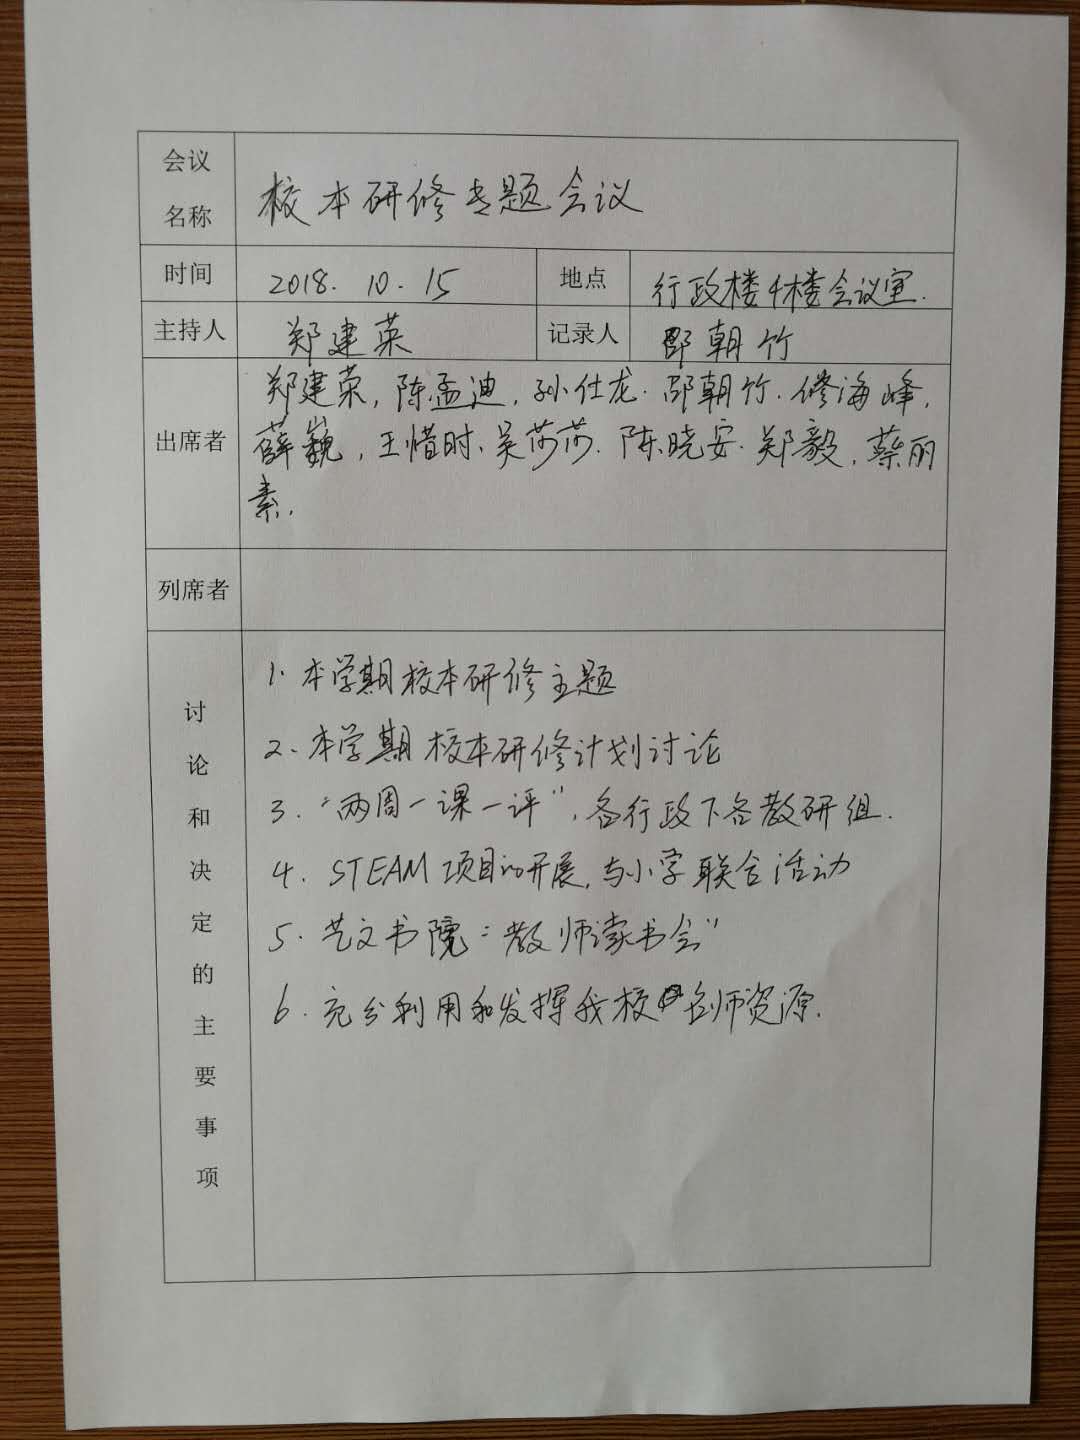 会议
名称
校本研修专题会议
时间
2018. 10. 15
地点
行政楼4楼会议室.
主持人
郑建英
记录人
邵朝竹
出席者
郑建荣, 陈孟迪, 孙仕龙. 邵朝竹. 修海峰,
薛巍, 王惜时、吴莎莎. 陈晓安. 郑毅, 蔡丽
素.
列席者
讨论和决定的主要事项
1. 本学期校本研修主题
2、本学期校本研修计划讨论
3. “两周一课一评”, 各行政下各教研组.
4. STEAM项目的开展, 与小学联合活动
5. 艺文书院“教师读书会”
6. 充分利用和发挥我校名师资源.